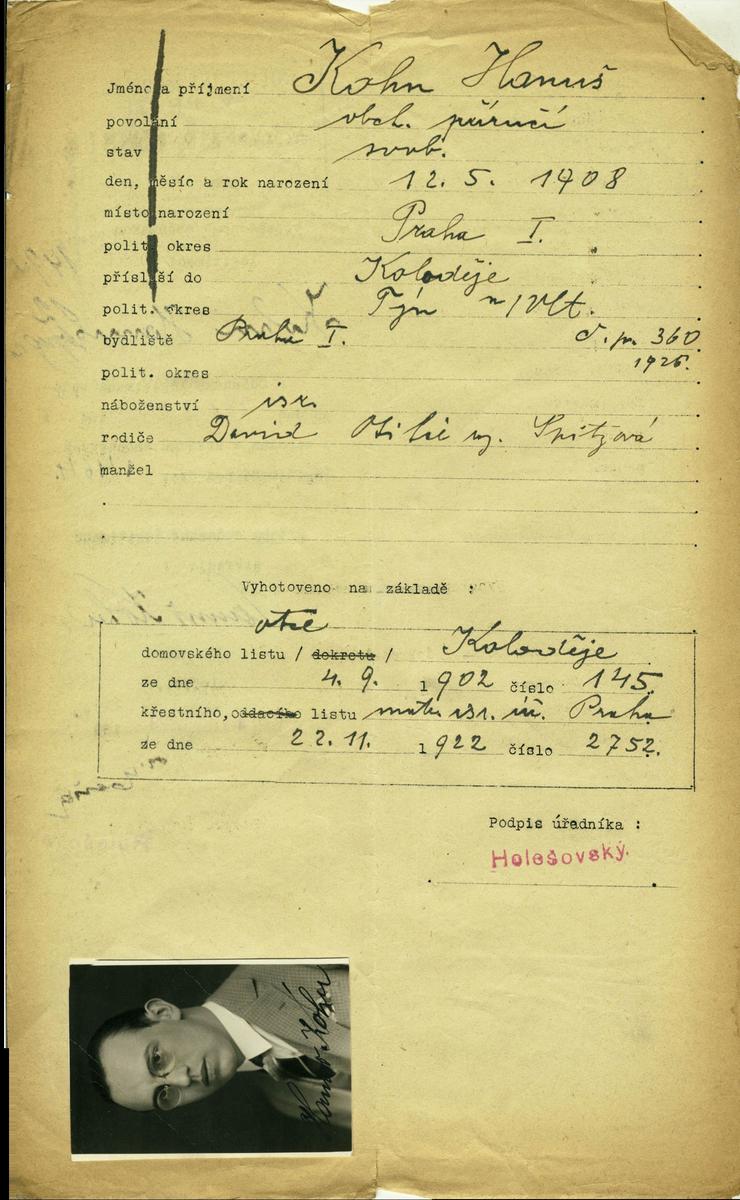 Jméno a příjmení Kohn Hanuš
povolání obch. příručí
stav svob.
den, měsíc a rok narození 12. 5. 1908
místo narození
Praha I.
polit. okres
přísluší do Koloděje
polit. okres Týn n/Vlt.
bydliště Praha I. č. p. 360
1926.
polit. okres
náboženství isr.
rodiče David Otilie roz. Spitzová
manžel
Vyhotoveno na základě :
otce
domovského listu / dekretu / Koloděje
ze dne 4. 9. 1902 číslo 145.
křestního, oddacího listu matr. isr. Praha
ze dne 22. 11. 1922 číslo 2752.
Podpis úředníka :
Holešovský.